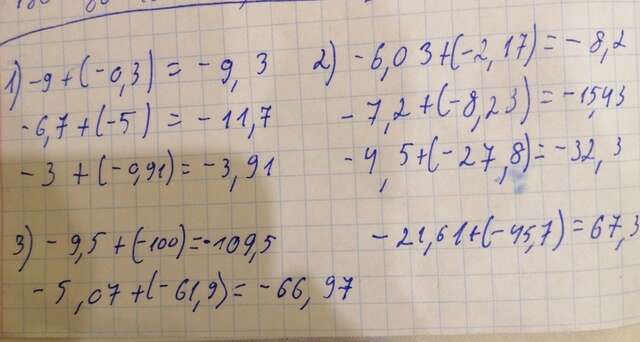 1) -9+(-0,3) = -9,3
-6,7+(-5) = -11,7
-3+(-0,91)=-3,91
2) -6,03+(-2,17)=-8,2
-7,2+(-8,23)=-15,43
-4,5+(-27,8)=-32,3
-21,61+(-45,7)=67,3
3) -9,5+(-100)=-109,5
-5,07+(-61,9)=-66,97